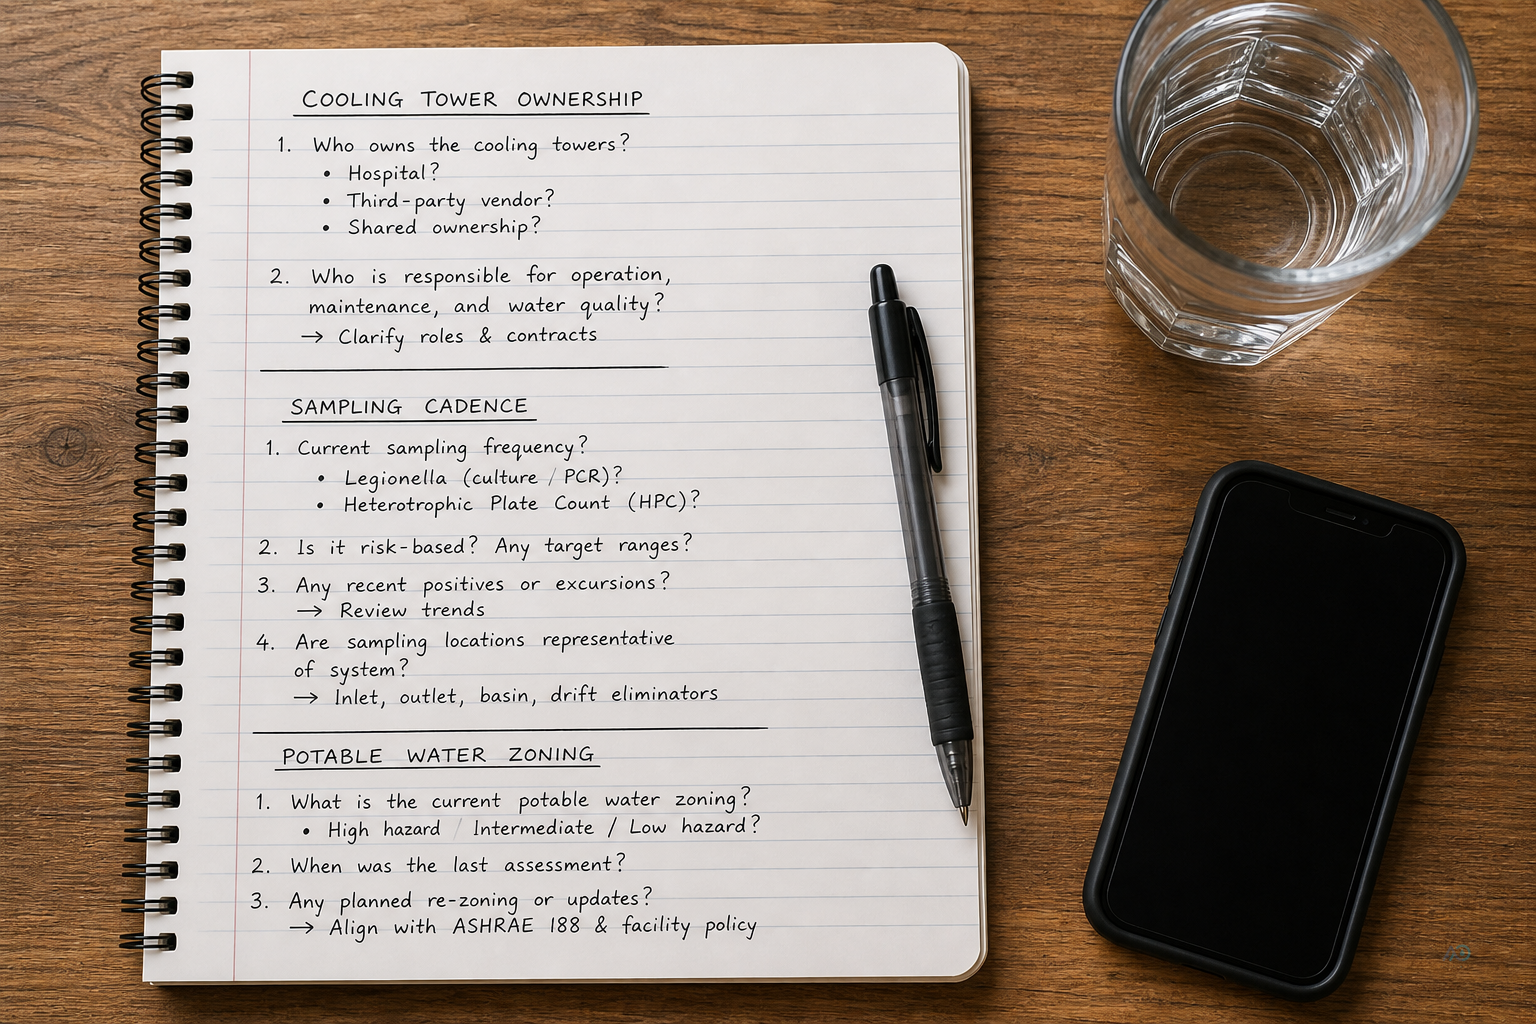 COOLING TOWER OWNERSHIP
1. Who owns the cooling towers?
• Hospital?
• Third-party vendor?
• Shared ownership?
2. Who is responsible for operation,
maintenance, and water quality?
→ Clarify roles & contracts
SAMPLING CADENCE
1. Current sampling frequency?
• Legionella (culture / PCR)?
• Heterotrophic Plate Count (HPC)?
2. Is it risk-based? Any target ranges?
3. Any recent positives or excursions?
→ Review trends
4. Are sampling locations representative
of system?
→ Inlet, outlet, basin, drift eliminators
POTABLE WATER ZONING
1. What is the current potable water zoning?
• High hazard / Intermediate / Low hazard?
2. When was the last assessment?
3. Any planned re-zoning or updates?
→ Align with ASHRAE 188 & facility policy